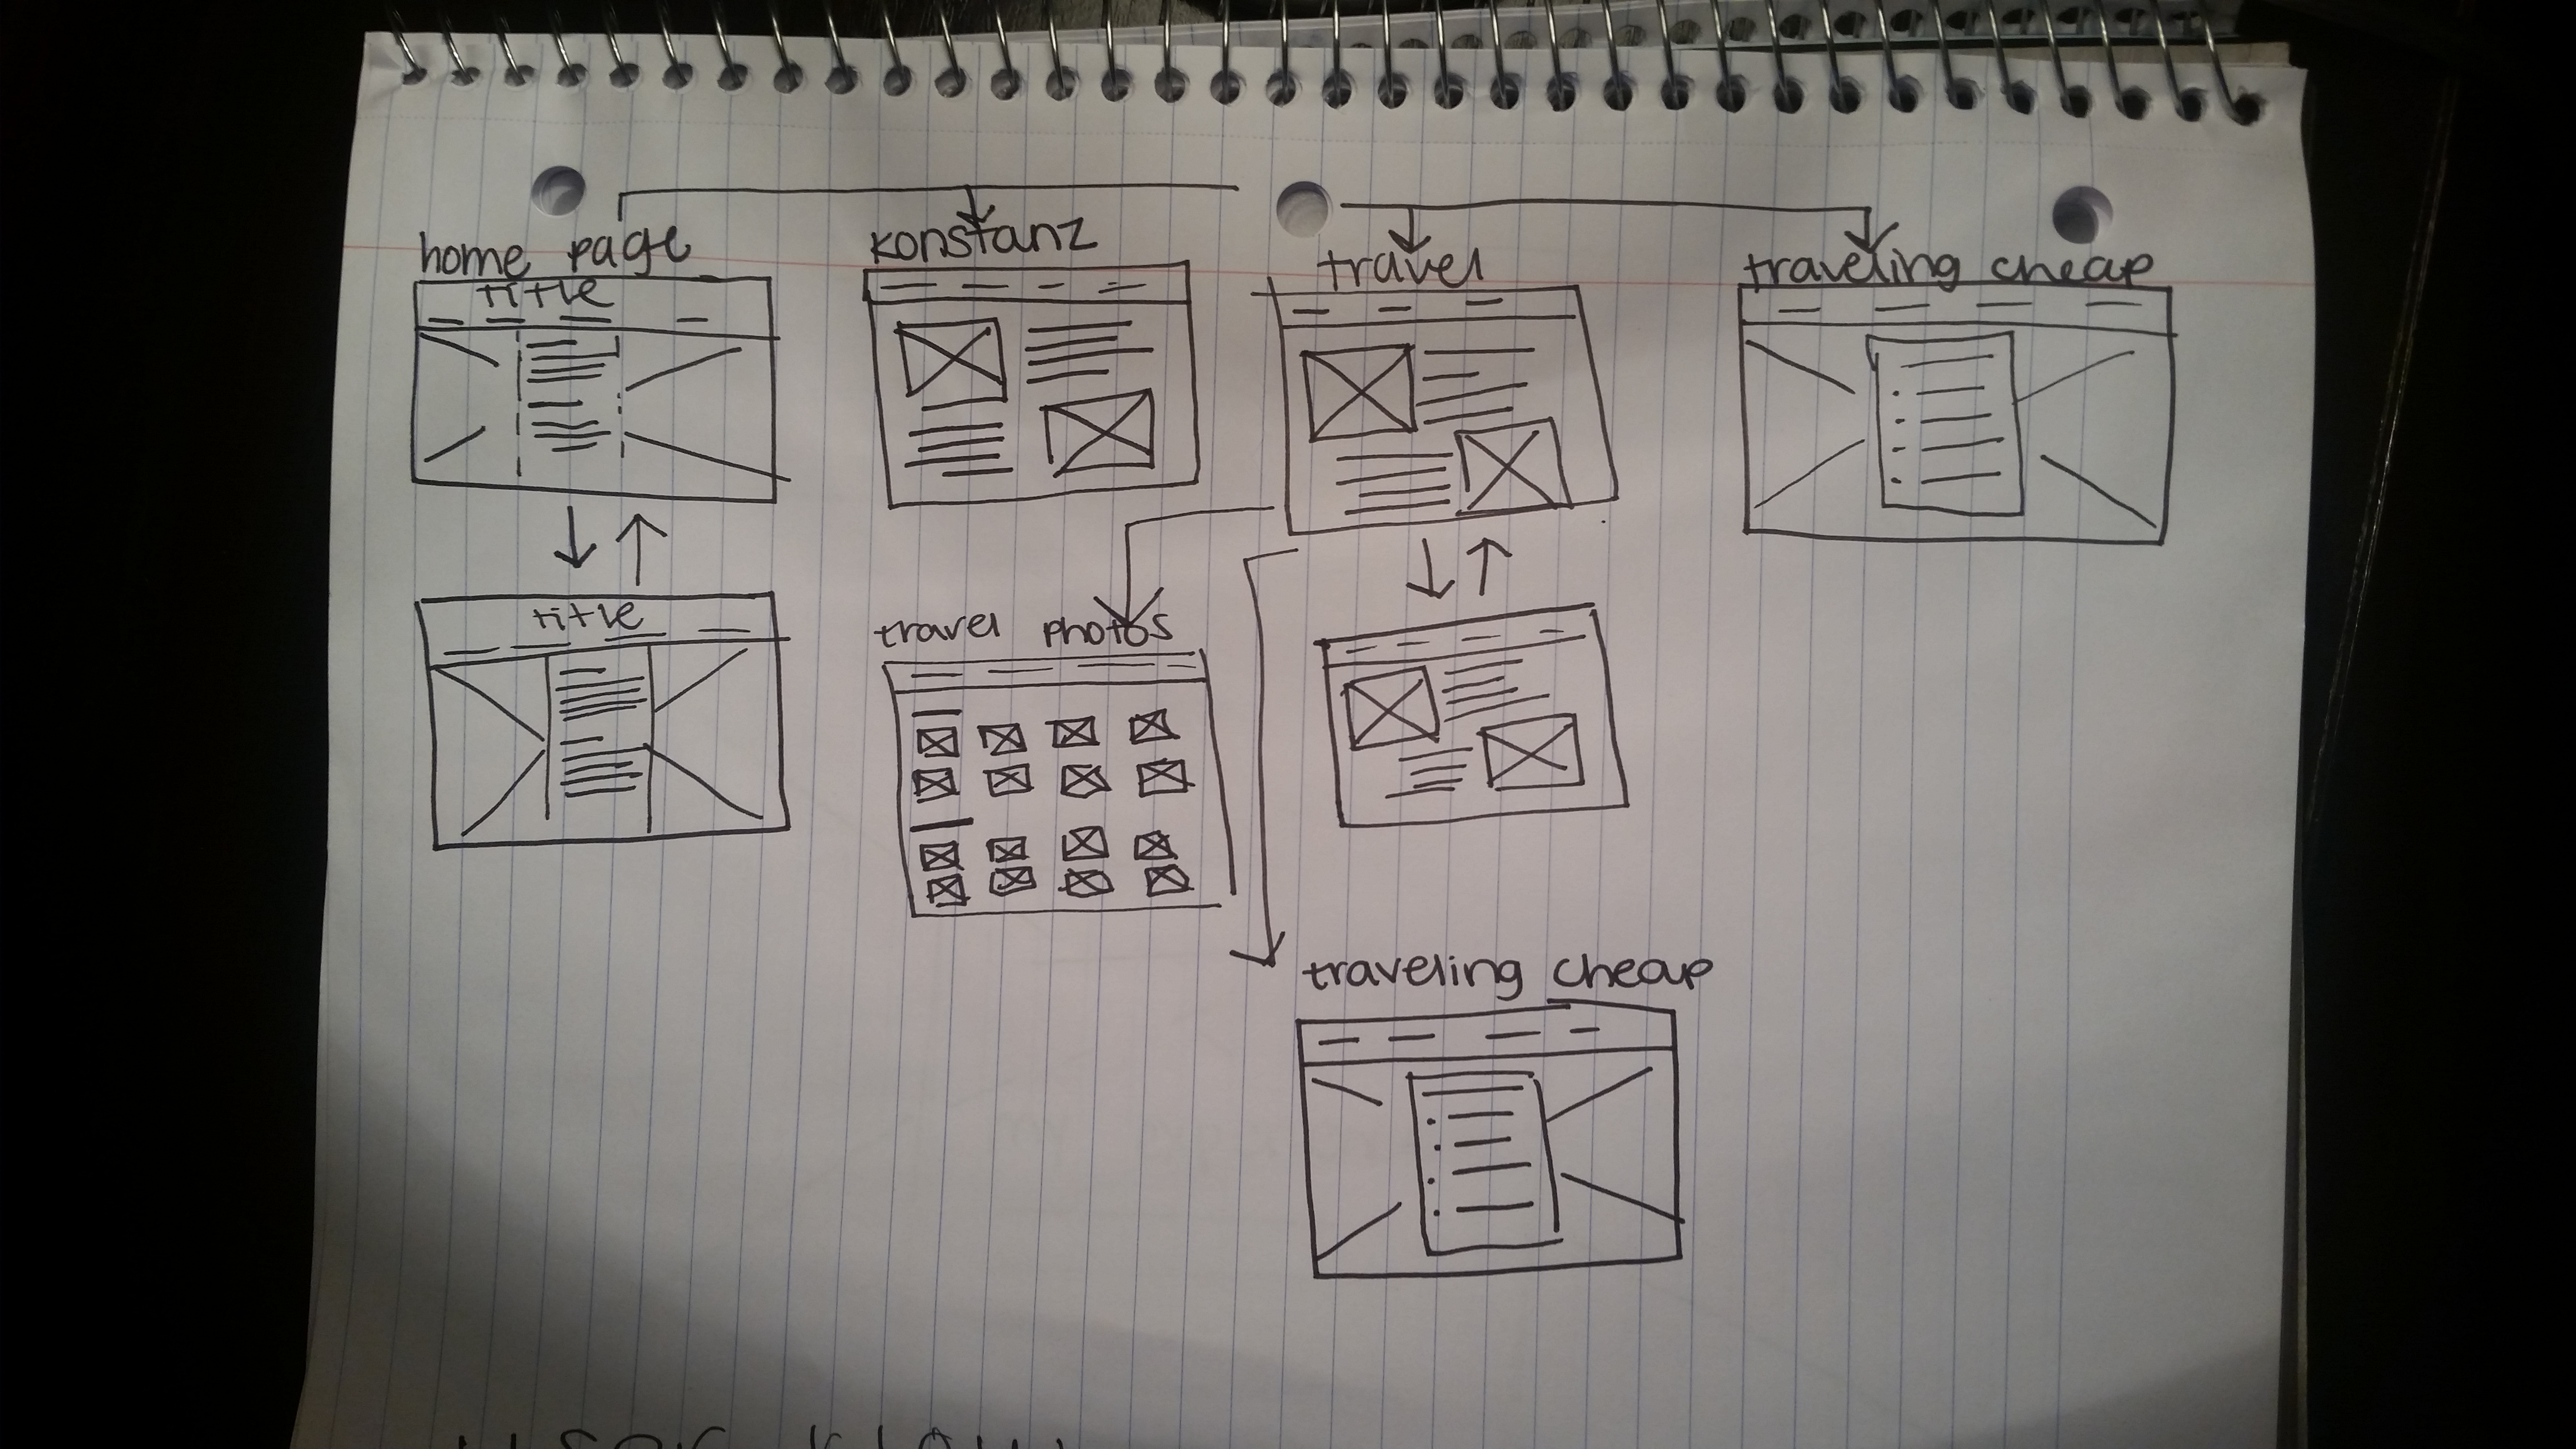 home page
konstanz
travel
traveling cheap
title
title
travel photos
traveling cheap